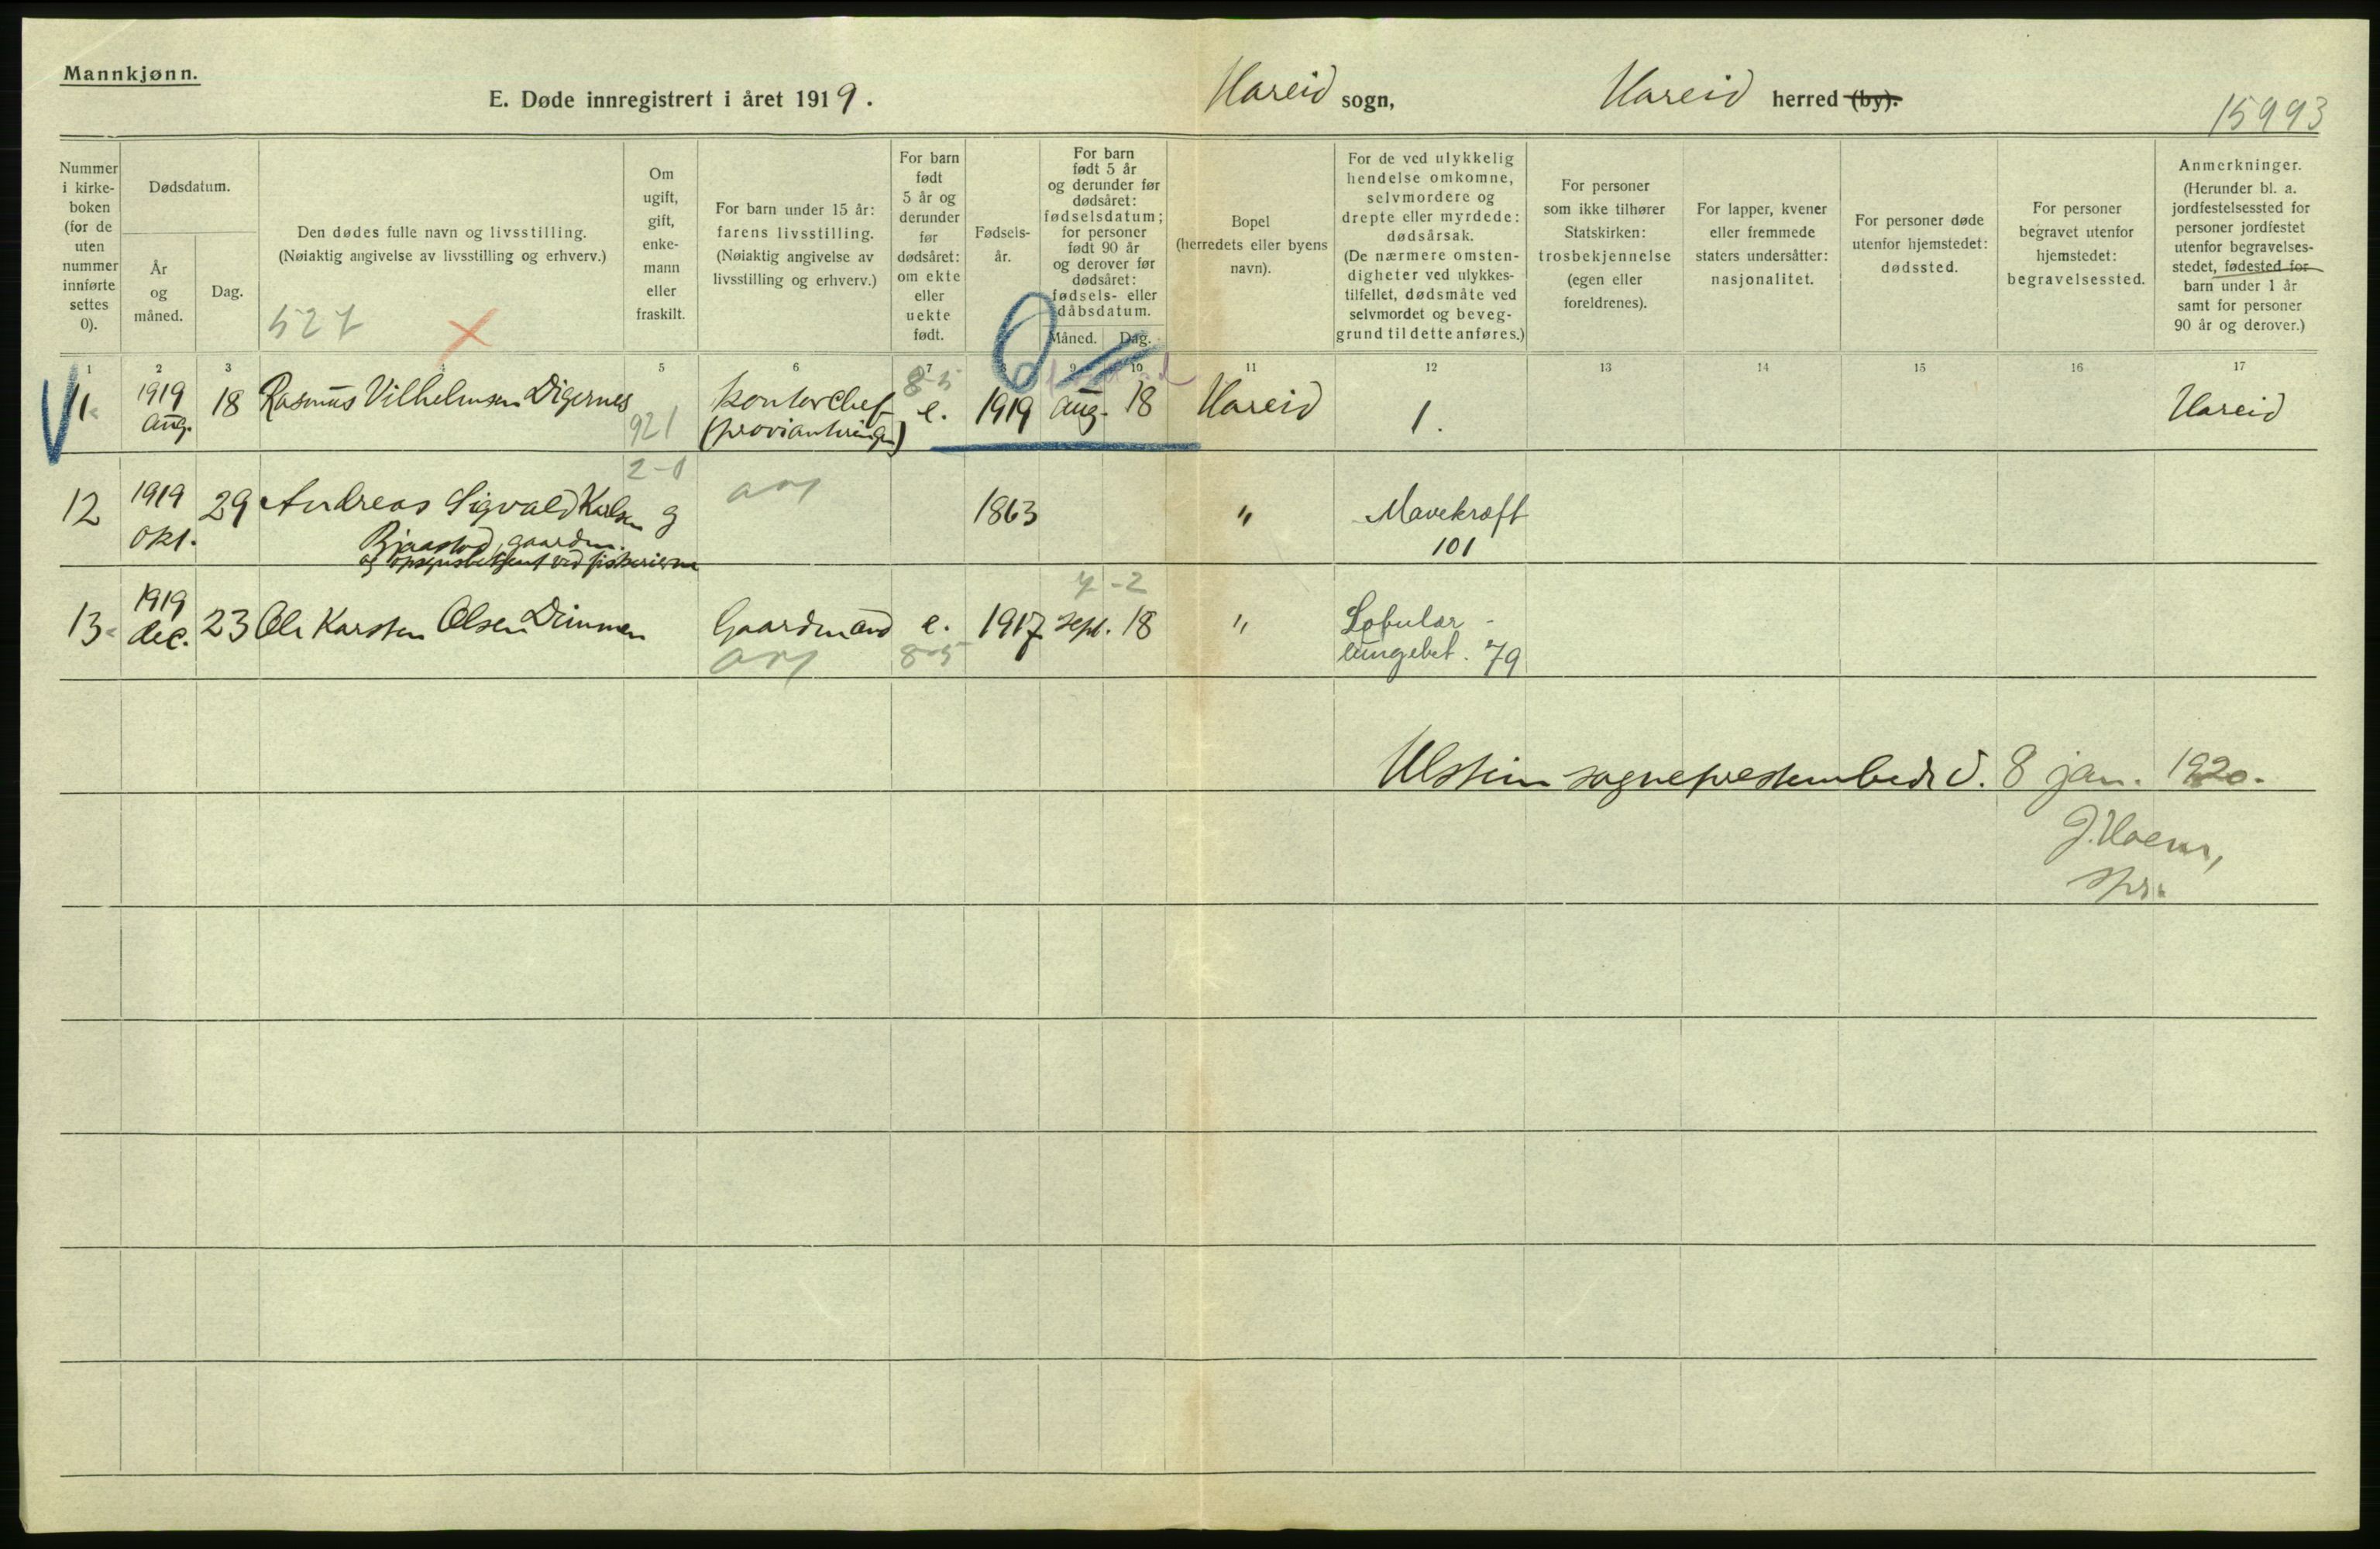 Mannkjønn.
E. Døde innregistrert i året 1919.
Hareid sogn,
Hareid herred (by).
15993
Nummer i kirke-boken (for de uten nummer innførte settes 0).
Dødsdatum.
År og måned.
Dag.
Den dødes fulle navn og livsstilling.
(Nøiaktig angivelse av livsstilling og erhverv.)
527
Om ugift, gift, enke-mann eller fraskilt.
For barn under 15 år: farens livsstilling.
(Nøiaktig angivelse av livsstilling og erhverv.)
For barn født 5 år og derunder før dødsåret: om ekte eller uekte født.
Fødsels-år.
For barn født 5 år og derunder før dødsåret: fødselsdatum; for personer født 90 år og derover før dødsåret: fødsels- eller dåbsdatum.
Måned.
Dag.
Bopel (herredets eller byens navn).
For de ved ulykkelig hendelse omkomne, selvmordere og drepte eller myrdede: dødsårsak.
(De nærmere omsten-digheter ved ulykkes-tilfellet, dødsmåte ved selvmordet og beveg-grund til dette anføres.)
For personer som ikke tilhører Statskirken: trosbekjennelse (egen eller foreldrenes).
For lapper, kvener eller fremmede staters undersåtter: nasjonalitet.
For personer døde utenfor hjemstedet: dødssted.
For personer begravet utenfor hjemstedet: begravelsessted.
Anmerkninger.
(Herunder bl. a. jordfestelsessted for personer jordfestet utenfor begravelses-stedet, fødested for barn under 1 år samt for personer 90 år og derover.)
1 2 3 4 5 6 7 8 9 10 11 12 13 14 15 16 17
11 1919 aug. 18 Rasmus Vilhelmsen Digernes 921 Kontorchef (provianteringen) 8-5 e. 1919 aug. 18 Hareid 1. Hareid
12 1919 okt. 29 Andreas Sigvald Karlsen g 2-0 1863 " Mavekræft
Bjaastad, gaardm. 101
og opsynsbetjent ved fiskerierne
13 1919 dec. 23 Ole Karsten Olsen Dimmen Gaardmand e. 1917 sept. 18 " Lobulær
8-5 lungebet. 79
Ulstein sogneprestembede d. 8 jan. 1920.
J. Hoem,
spr.